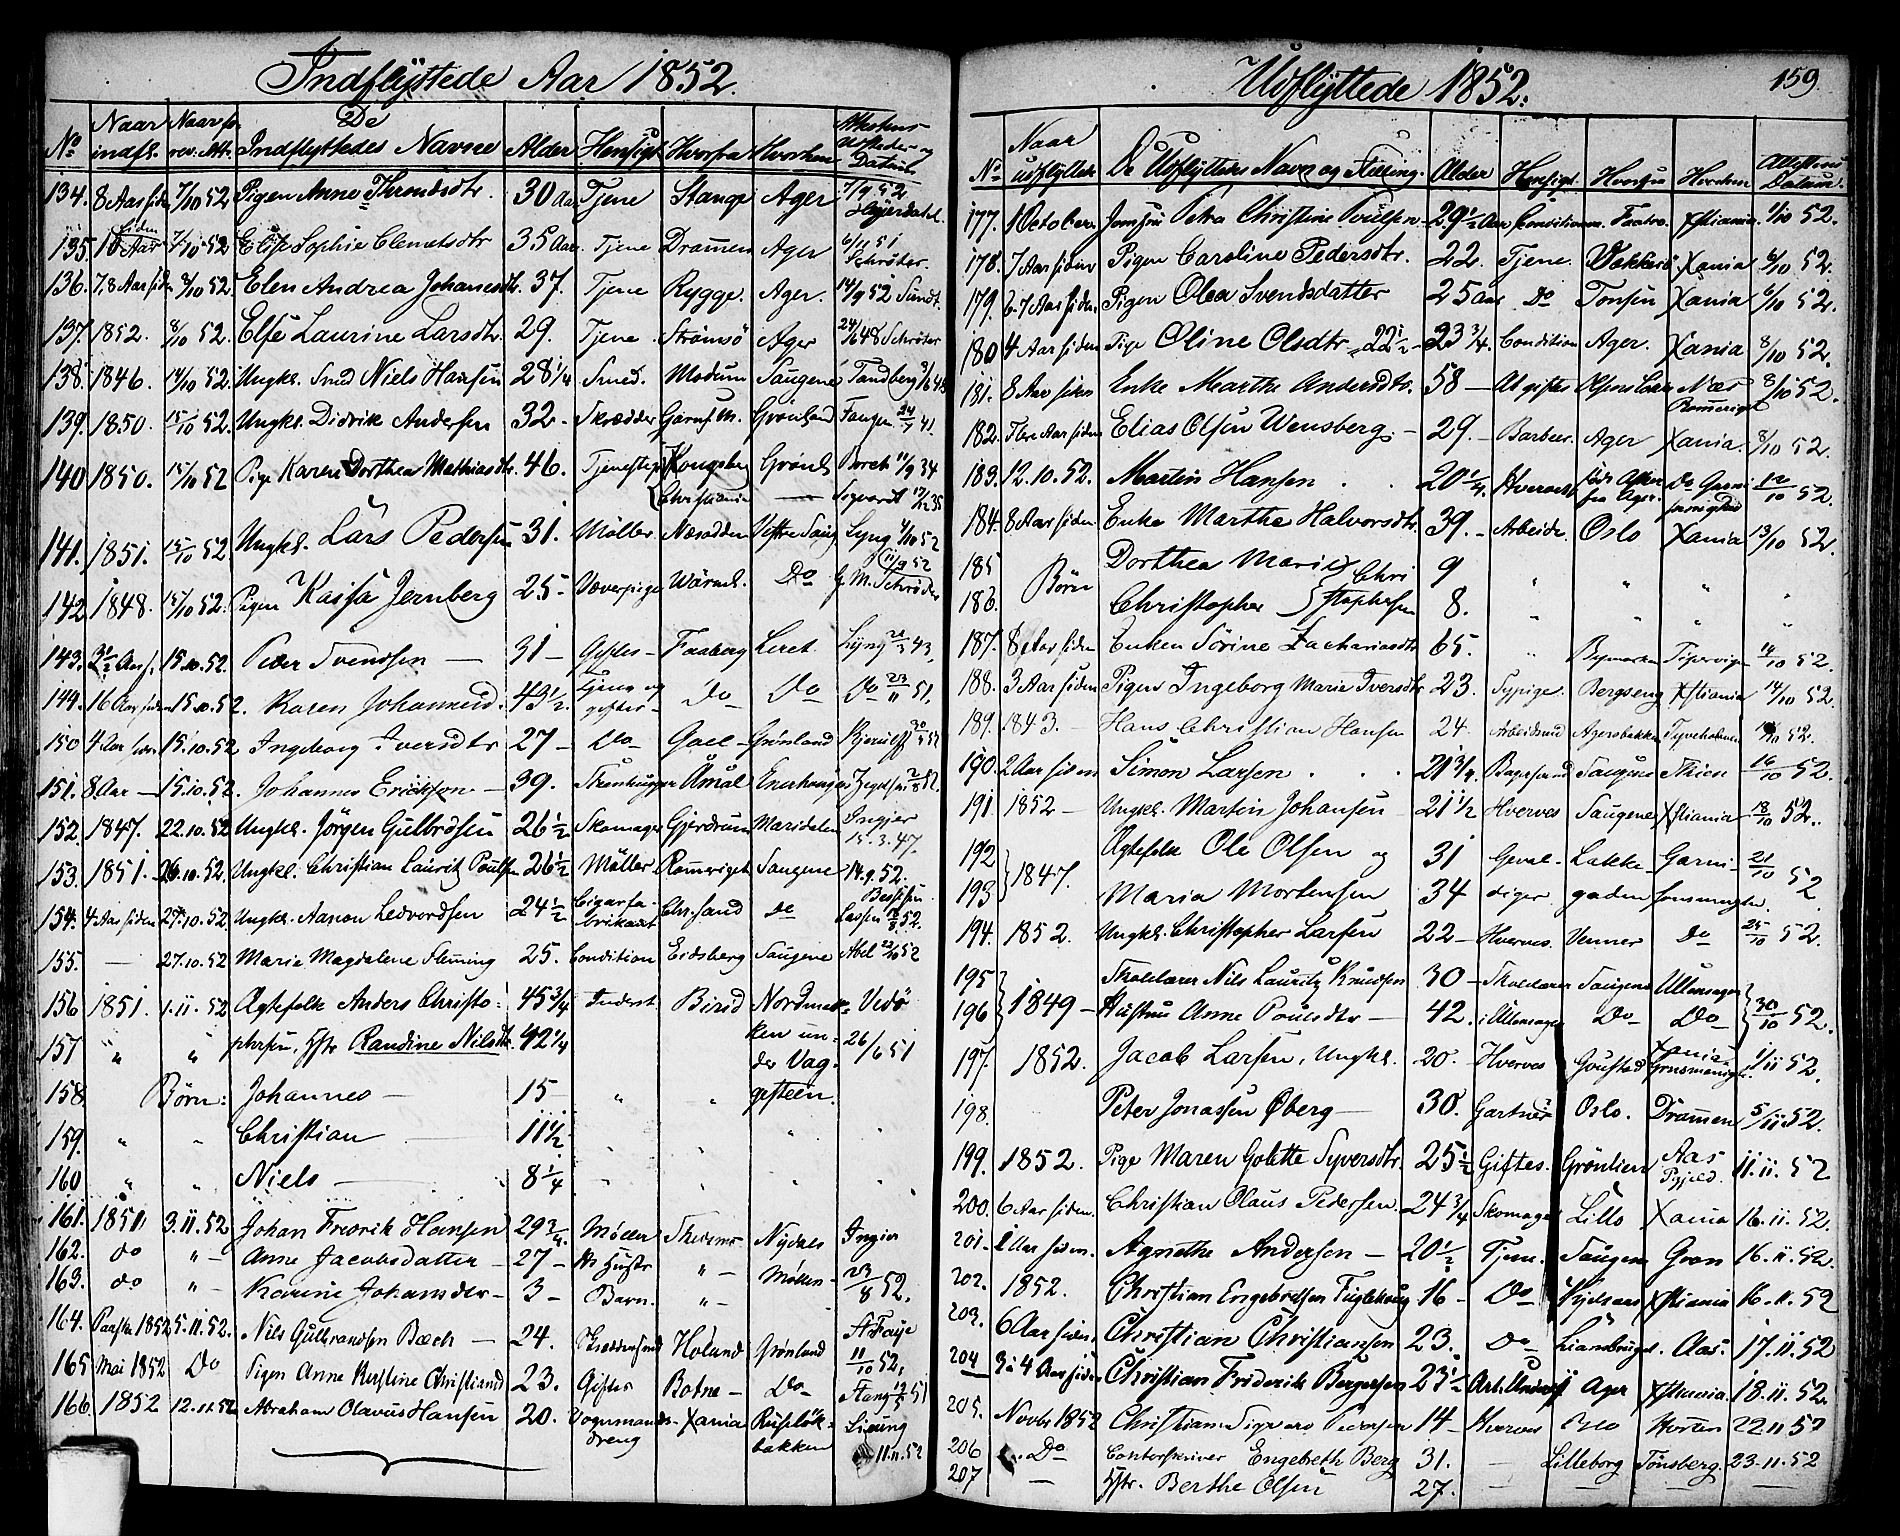 Indflyttede Aar 1852.
No Naar indfl. Naar for rev. Att. De Indflyttedes Navne Alder Hensigt Hvorfra Hvorhen Attestens Udsteder og Datum
134. 8 Aar siden 7/10 52. Pigen Anne Throndsdtr 30 Aar Tjene Stange Ager 7/9 52
135. 10 Aar siden 7/10 52 Else Sophie Clemetsdtr 35 Aar. Tjene Dramen Ager 6/11 51 Schrøter.
136. 7, 8 Aar siden 8/10 52. Elen Andrea Johanesdtr. 37. Tjene Rygge. Ager. 14/9 52 Sundt.
137. 1852. 8/10 52. Else Laurine Larsdtr. 29. Tjene. Strømsö Ager 24/6 48 Schröter
138. 1846. 14/10 52. Ungkl. Smed Niels Hansen 28 1/4 Smed. Modum Saugene Tandberg
139. 1850. 15/10 52. Ungkl. Didrik Andersen 32. Skrædder Grönland Fangen 24/7 41.
140 1850. 15/10 52 Pige Karen Dorthea Mathiasdtr. 46. Tjenestepi Kongsberg Grönl. Borch 11/9 34
Christiania — Sigvardt 17/12 35
141. 1851. 15/10 52 Ungkl. Lars Pedersen 31. Møller Næsodden Vestre Saug. Lyng 1/10 52
142 1848. 15/10 52. Pigen Kaisa Jernberg 25 - Væverpige Wärml. Do 11/9 52 G. M. Schrøder
143. 3 1/2 Aar s. 15.10.52. Peder Svendsen — 31 — Giftes - Faaberg Leret. Lyng 43.
149. 16 Aar siden 15.10.52. Karen Johannesd. 43 1/2. Tjene og giftes - Do Do Do 23/11 51.
150 4 Aar siden 15.10.52 Ingeborg Iversdtr 27 — Do Gael - Grönland Kjerulf
151. 8 Aar — 15.10.52. Johannes Erickson — 39. Åmål Enerhaugen
152. 1847. 22.10.52 Ungkl. Jörgen Gulbrdsen 26 1/2 Skomager Gjerdrum Maridalen Ingier 15.3.47.
153. 1851. 26.10.52. Ungkl. Christian Lauritz Poulsen 26 1/2 Møller Romeriget Saugene 14.9.52.
154. 4 Aar siden 27.10.52. Ungkl. Aanon Ledvordsen 24 1/2 Cigarfabrikant Chr.sand Do Lassen 52.
155. — 27.10.52 Maria Magdalene Fleming 25. Condition Eidsberg Saugene Abel 22/10 52
156 1851. 1.11.52 Ægtefolk Anders Christo- 45 3/4 Inderst Birid Nordmar- Vedö
157 " " phersen, Hstr Randine Nilsdtr. 42 1/4 ken under Vaggesteen. 26/6 51
158 Börn: Johannes — 15 — " "
159. " " Christian — 11 1/2 " "
160 " " Niels — 8 1/4 " "
161. 1851 3.11.52 Johan Fredrik Hansen 29 3/4 Møller Nydals Ingier
162. do " — Anne Jacobsdatter — 27 — Hs Hustr " — Møllen 23/8 52.
163. do " — Karine Johansder — 3 — Barn. " —
164. Paaske 1852 5.11.52. Nils Gulbrandsen Bæch — 24. Höland Grönland A Faye 11/10 52,
165 Mai 1852 Do Pigen Anne Kirstine Christiansd 23. Giftes Botne — Do Stang 51
166. 1852 12.11.52 Abraham Olavus Hansen 20. Vognmands-dreng Xania Ruselök-bakken 11.11.52
Udflyttede 1852. 159.
No Naar udflyttede De Udflyttedes Navn og Stilling. Alder Hensigt. Hvorfra Hvorhen Attestens Datum.
177. 1 October Jomfru Petra Christine Poulsen 29 1/2 Aar Condition Xstiania. 1/10 52.
178. 7 Aar siden Pigen Caroline Pedersdtr. 22. Tjene. Xania 6/10 52.
179. 6-7 Aar siden. Pigen Olea Svendsdatter 25 Aar Do Tonsen Xania 6/10 52.
180 4 Aar siden Pige Oline Olsdtr 22 1/2 — 23 3/4. Condition Ager. Xania 8/10 52.
181. 8 Aar siden Enke Marthe Andersdtr. 58 — At giftes Nær Romeriget 8/10 52.
182. Flere Aar siden Elias Olsen Wensberg. — 29. — Barber. Ager Xania. 8/10 52.
183. 12.10.52. Martin Hansen 20 1/4. Hvervet Do 12/10 52.
184. 8 Aar siden Enke Marthe Halvorsdtr. 39. — Arbeide. Oslo Xania 13/10 52.
185 Börn Dorthea Marie Chri- 9 " " " "
186. Christopher stophersen 8. " " " "
187. 8 Aar siden Enken Sörine Zachariasdtr 65. " Bymarken 14/10 52.
188. 3 Aar siden Pigen Ingeborg Marie Iversdtr. 23. Sypige. Bergseng Xstiania 14/10 52.
189. 1843. — Hans Christian Hansen 24. Arbeidsmd Agersbakken Tyveholmen 52.
190. 2 Aar siden Simon Larsen 21 3/4. Bagersvend Saugene Skien 16/10 52.
191. 1852 — Ungkl. Martin Johansen 21 1/2 Hverves Saugene Xstiania 18/10 52.
192 Ægtefolk Ole Olsen og 31 Geval- Lakke- Garni- 21/10 52
193 1847. Maria Mortensen 34 diger gaden sonsmenigh.
194. 1852. Ungkl. Christopher Larsen 22 — Hverves. Venner Do 25/10 52.
195 Skolelærer Nils Lauritz Knudsen 30 — Skolelærer Saugene Ullensager 30/10 52.
196 1849 — Hustru Anne Poulsdtr — 42. i Ullensager Do Do
197. 1852. Jacob Larsen, Ungkl. 20. Hverves Goustad Xania Grnsmenigh. 1/11 52.
198. Peter Jonassen Øberg — 30. Gartner Oslo. Dramen 5/11.52.
199. 1852. Pige Maren Golette Syversdtr. 25 1/2 Giftes. Grönlien Aas 11.11.52
200. 6 Aar siden. Christian Olaus Pedersen. 24 3/4 Skomager Lillo Xania 16.11.52.
201. 1 Aar siden. Agnethe Andersen — 20 1/2 Tjene. Saugene Gran 16.11.52.
202. 1852. Christian Engebretsen Fuglehaug 16 — Do Xstiania 16.11.52
203. 6 Aar siden. Christian Christiansen 23. Do Liansbruget. Aas. 17.11.52
204 3 à 4 Aar siden. Christian Friderik Bergersen 23 1/2 Ager Xstiania. 18.11.52.
205. Novbr 1852 Christian Sigvard Pedersen 14 — Hverves Oslo Horten 22.11.52
206 Do Contorskriver Engebreth Berg 31. — Lilleborg Tönsberg. 23.11.52
207 — Hstr. Berthe Olsen 27. — — — —